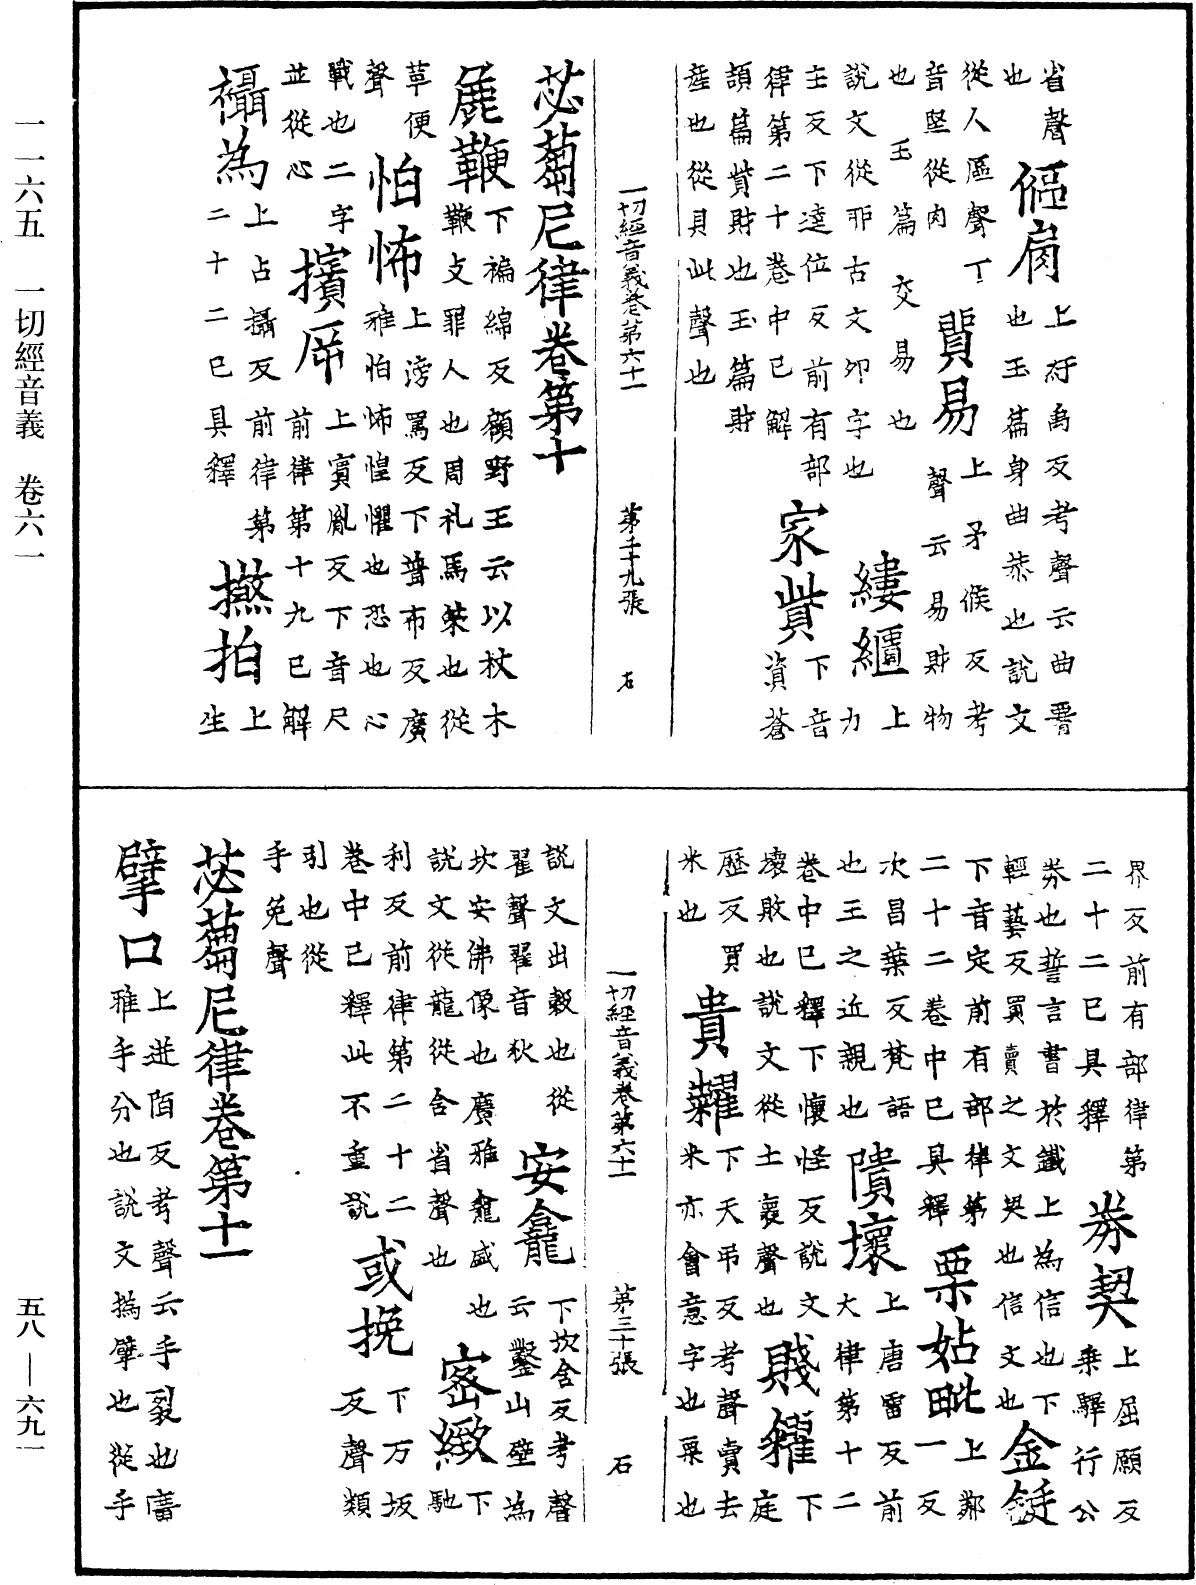 一一六五　一切經音義　卷六一
五八—六九一
省聲也
傴肩
上紆禹反考聲云曲脊也玉篇身曲恭也說文從人區聲丁音堅從肉
貿易
上矛候反考聲云易財物也玉篇交易也說文從丣古文卯字也
縷繮
上力主反下薑位反前有部律第二十卷中已解
家貲
下音資蒼頡篇貲財也玉篇財產也從貝此聲也
一切經音義卷第六十一　第二十九張　石
苾蒭尼律卷第十
麁鞭
下褊綿反顧野王云以杖木鞭攴罪人也周礼馬策也從革便聲
怕怖
上滂罵反下普布反廣雅怕怖惶懼也恐也心戰也二字並從心
擯㡿
上賓胤反下音尺前律第十九已解
襵為
上占攝反前律第二十二已具釋
撚拍
上
生界反前有部律第二十二已具釋
券契
上屈願反乘驛行公券也誓言書於鐵上為信也下輕藝反買賣之文契也信文也
金鋌
下音定前有部律第二十二卷中已具釋
栗姑毗
上鄰一反次昌葉反梵語也王之近親也
隤壞
上唐雷反前大律第十二卷中已釋下懷怪反說文壞敗也說文從土褱聲也
賤糴
下庭歷反買米也
貴糶
下天弔反考聲賣去米亦會意字也粟也
一切經音義卷第六十一　第三十張　石
說文出穀也從翟聲翟音狄
安龕
下坎含反考聲云鑿山壁為坎安佛像也廣雅龕盛也說文從龍從含省聲也
密緻
下馳利反前律第二十二卷中已釋此不重說
或挽
下万坂反聲類引也從手免聲
苾蒭尼律卷第十一
擘口
上迸陌反考聲云手裂也廣雅手分也說文撝擘也從手